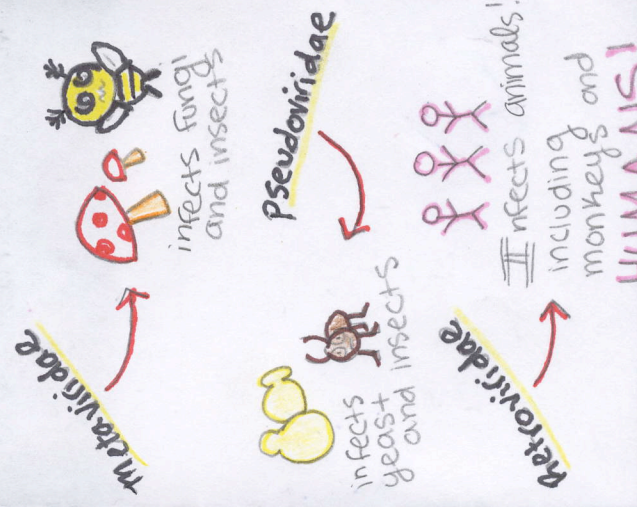 metaviridae
infects fungi
and insects
pseudoviridae
infects
yeast
and insects
Retroviridae
Infects animals!
including
monkeys and
HUMANS!